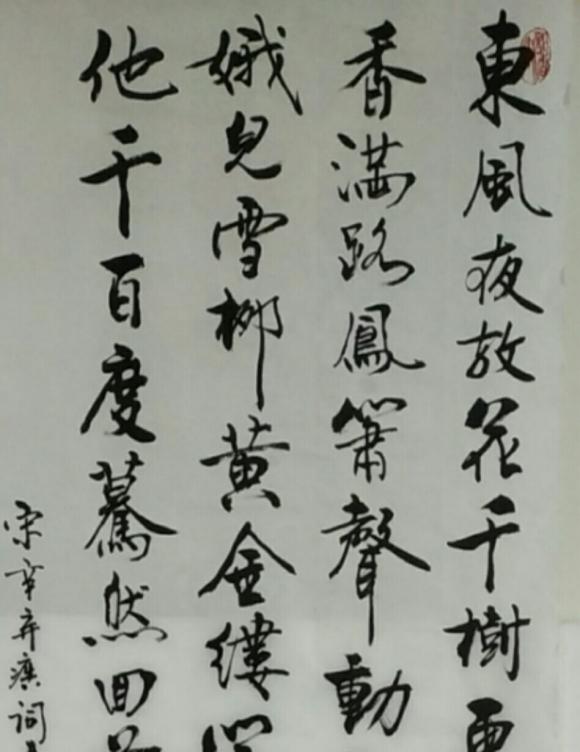 東風夜放花千樹更
香滿路鳳簫聲動
娥兒雪柳黃金縷笑
他千百度驀然回首
宋辛弃疾词